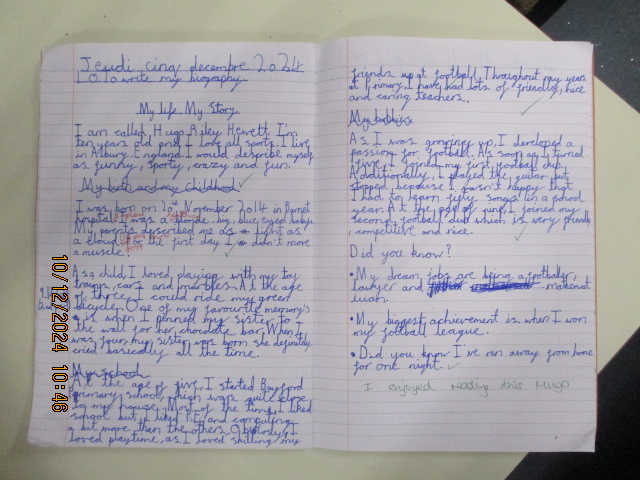 Jeudi cinq decembre 2024
L.O. To write my biography
My life, My Story
I am called, Hugo Riley Hewett. I'm
ten years old and I love all sports. I live
in Asbury, England. I would describe myself
as funny, sporty, crazy and fun.
My birth and my childhood
I was born on 20th November 2014 in Barnet
hospital. I was a blonde, big, blue, eyed baby.
My parents described me as light as
a cloud. For the first day I didn't move
a muscle.
As a child, I loved, playing with my toy
trains, cars and marbles. At the age
of three, I could ride my green
bicycle. One of my favourite memory's
is when I penned my sister to
the wall for her chocolate bar. When I
was four, my sister was born she definitely
cried basically all the time.
My school
At the age of five, I started Bayford
primary school, which was quite close
to my house. Most of the time, I liked
school but I like P.E and computing
a bit more than the others. Obviously, I
loved playtime, as I loved skilling my
friends up at football. Throughout my years
at Primary, I have had lots of friendly, nice
and caring teachers.
My hobbies
As I was growing up, I developed a
passion for football. As soon as I turned
five, I joined my first football club.
Additionally, I played the guitar but
stopped because I wasn't happy that
I had to learn fifty songs in a school
year. At the age of nine, I joined my
second football club which is very friendly
competitive and nice.
Did you know?
•My dream, jobs are being a footballer,
lawyer and
•My biggest achievement is when I won
my football league.
•Did you know I've ran away from home
for one night.
I enjoyed reading this Hugo
10/12/2024 10:46